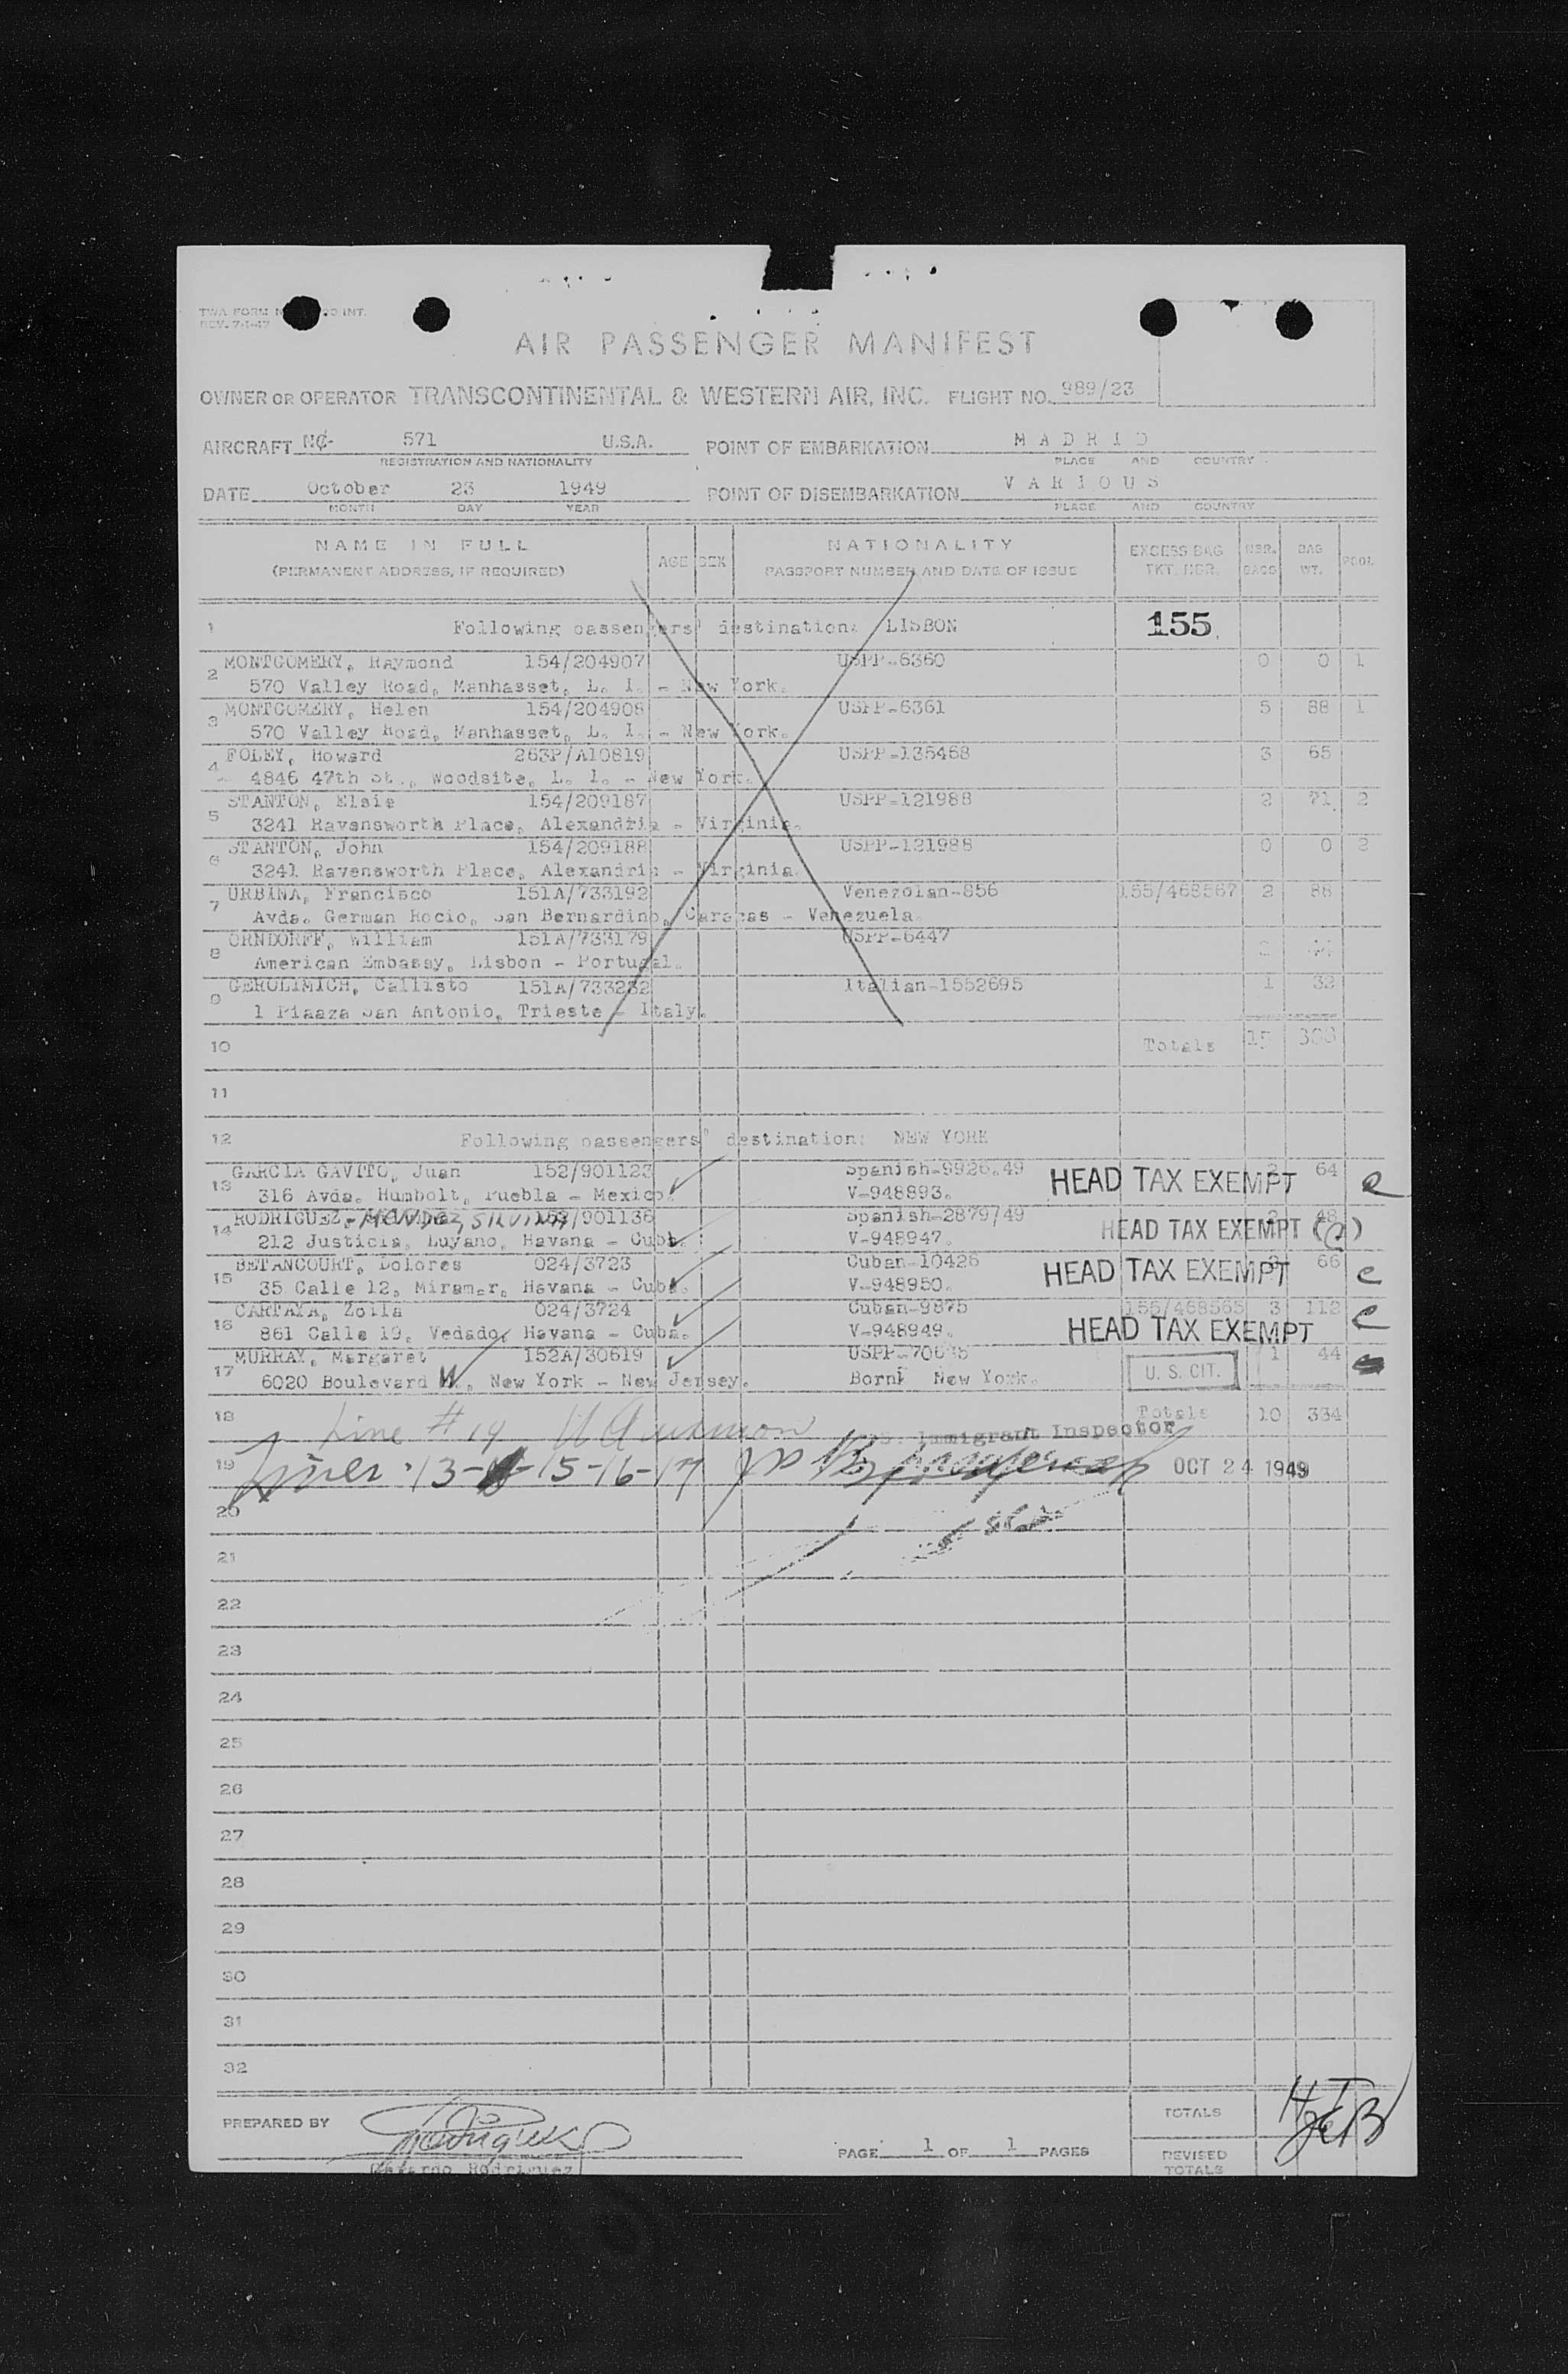 TWA FORM N 00 INT.
REV. 7-1-47
AIR PASSENGER MANIFEST
OWNER OR OPERATOR TRANSCONTINENTAL & WESTERN AIR, INC. FLIGHT NO. 989/23
AIRCRAFT NC- 571 U.S.A. POINT OF EMBARKATION MADRID
REGISTRATION AND NATIONALITY PLACE AND COUNTRY
DATE October 23 1949 POINT OF DISEMBARKATION VARIOUS
MONTH DAY YEAR PLACE AND COUNTRY
NAME IN FULL (PERMANENT ADDRESS, IF REQUIRED) AGE SEX NATIONALITY PASSPORT NUMBER AND DATE OF ISSUE EXCESS BAG TKT. NBR. NBR. BAGS BAG WT. POOL
1 Following passengers' destination: LISBON 155
2 MONTGOMERY, Raymond 154/204907 USPP-6360 0 0 1
570 Valley Road, Manhasset, L. I. - New York.
3 MONTGOMERY, Helen 154/204908 USPP-6361 5 88 1
570 Valley Road, Manhasset, L. I. - New York.
4 FOLEY, Howard 263P/A10819 USPP-135468 3 65
4846 47th St., Woodsite, L. I. - New York.
5 STANTON, Elsie 154/209187 USPP-121988 2 71 2
3241 Ravensworth Place, Alexandria - Virginia.
6 STANTON, John 154/209188 USPP-121988 0 0 2
3241 Ravensworth Place, Alexandria - Virginia.
7 URBINA, Francisco 151A/733192 Venezolan-856 155/468567 2 88
Avda. German Rocio, San Bernardino, Caracas - Venezuela.
8 ORNDORFF, William 151A/733179 USPP-6447 2
American Embassy, Lisbon - Portugal.
9 GEROLIMICH, Callisto 151A/733232 Italian-1552695 1 32
1 Piaaza San Antonio, Trieste - Italy.
10 Totals 15
11
12 Following passengers' destination: NEW YORK
13 GARCIA GAVITO, Juan 152/901123 Spanish-9926.49 HEAD TAX EXEMPT 2 64 e
316 Avda. Humbolt, Puebla - Mexico. V-948893.
14 RODRIGUEZ - MENDEZ, SILVINA 152/901136 Spanish-2879/49 HEAD TAX EXEMPT 2 48 (2)
212 Justicia, Luyano, Havana - Cuba. V-948947.
15 BETANCOURT, Dolores 024/3723 Cuban-10426 HEAD TAX EXEMPT 66 e
35 Calle 12, Miramar, Havana - Cuba. V-948950.
16 CARTAYA, Zoila 024/3724 Cuban-9875 155/468565 3 112 e
861 Calle 19, Vedado, Havana - Cuba. V-948949. HEAD TAX EXEMPT
17 MURRAY, Margaret 152A/30619 USPP- 1 44
6020 Boulevard W., New York - New Jersey. Born: New York. U. S. CIT.
18 Line # 14 Totals 10 334
Immigrant Inspector
19 Lines 13- -15-16-17 OCT 24 1949
20
21
22
23
24
25
26
27
28
29
30
31
32
PREPARED BY PAGE 1 OF 1 PAGES TOTALS
Rodriguez REVISED TOTALS